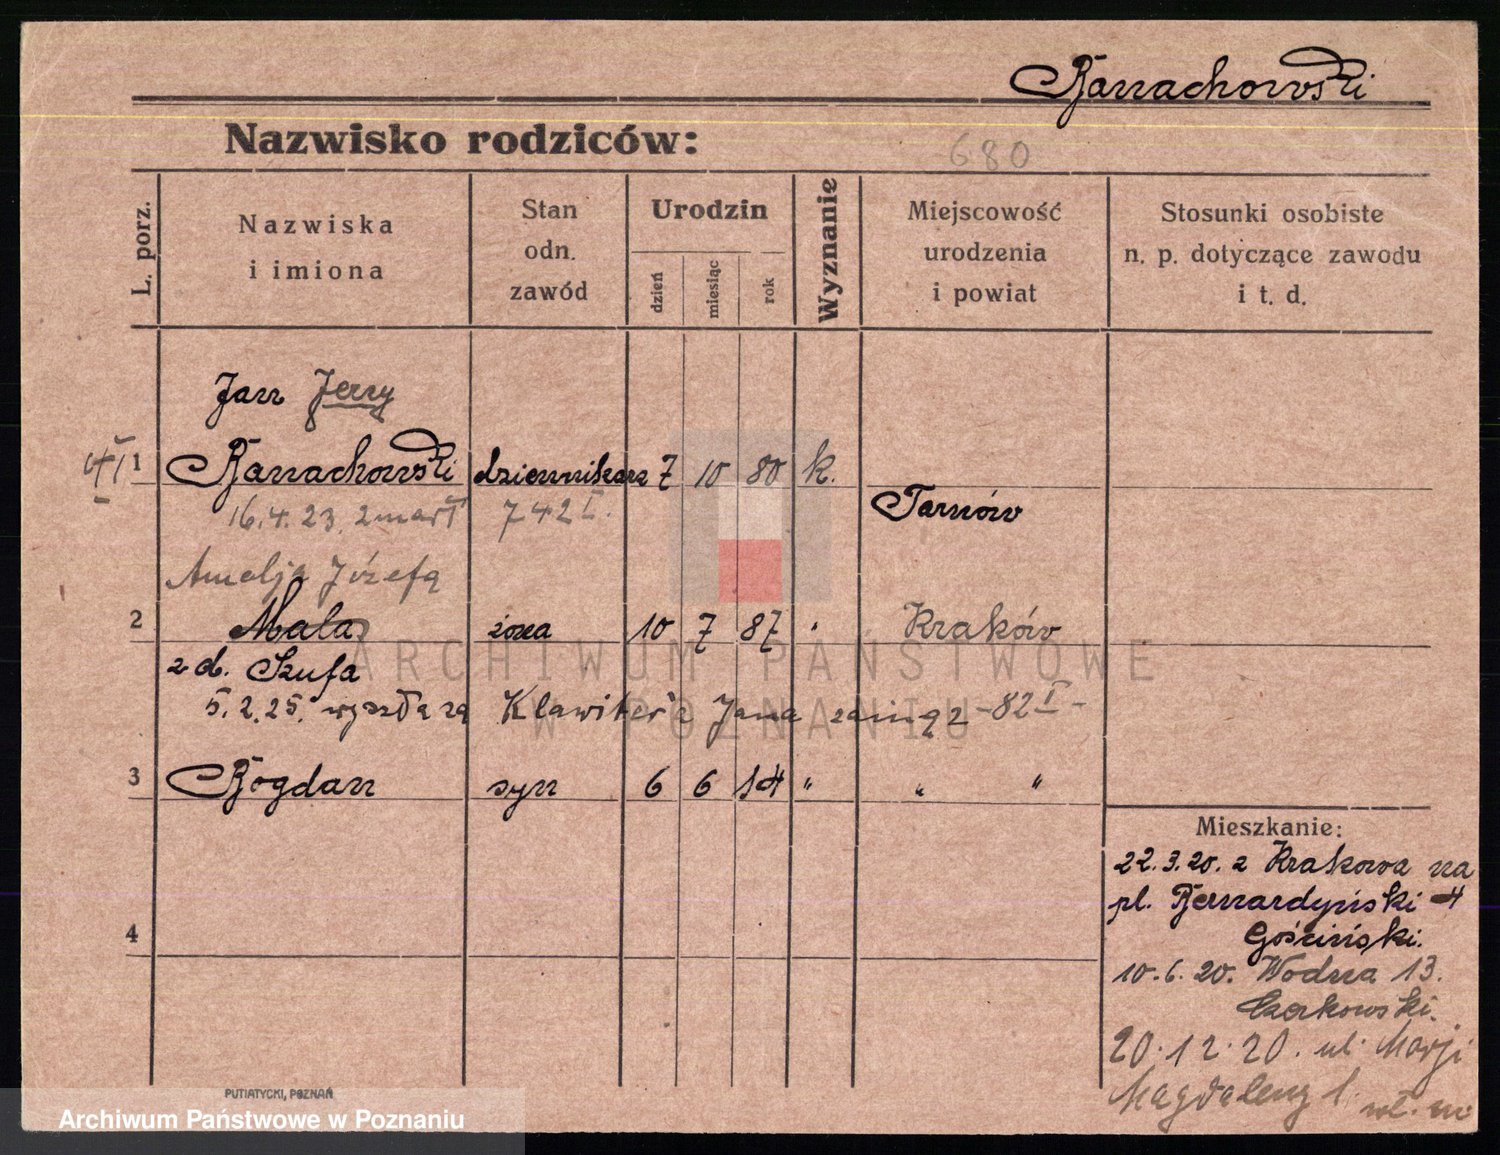 Banachowski
Nazwisko rodziców:
680
L. porz.
Nazwiska
i imiona
Stan
odn.
zawód
Urodzin
dzień
miesiąc
rok
Wyznanie
Miejscowość
urodzenia
i powiat
Stosunki osobiste
n. p. dotyczące zawodu
i t. d.
Jan Jerzy
1 Banachowski dziennikarz 7 10 80 k.
Tarnów
16.4.23. zmarł 742 I.
Amelja Józefa
2 Mala żona 10 7 87 " Kraków
z d. Szufa
5.2.25. wyszła za Klawiter'a Jana zamąż -82 I-
3 Bogdan syn 6 6 14 " " "
4
Mieszkanie:
22.3.20. z Krakowa na
pl. Bernardyński 4
Gościński.
10.6.20. Wodna 13.
Czerkowski.
20.12.20. ul. Marji
Magdaleny 1.
PUTIATYCKI, POZNAŃ
ARCHIWUM PAŃSTWOWE
W POZNANIU
Archiwum Państwowe w Poznaniu